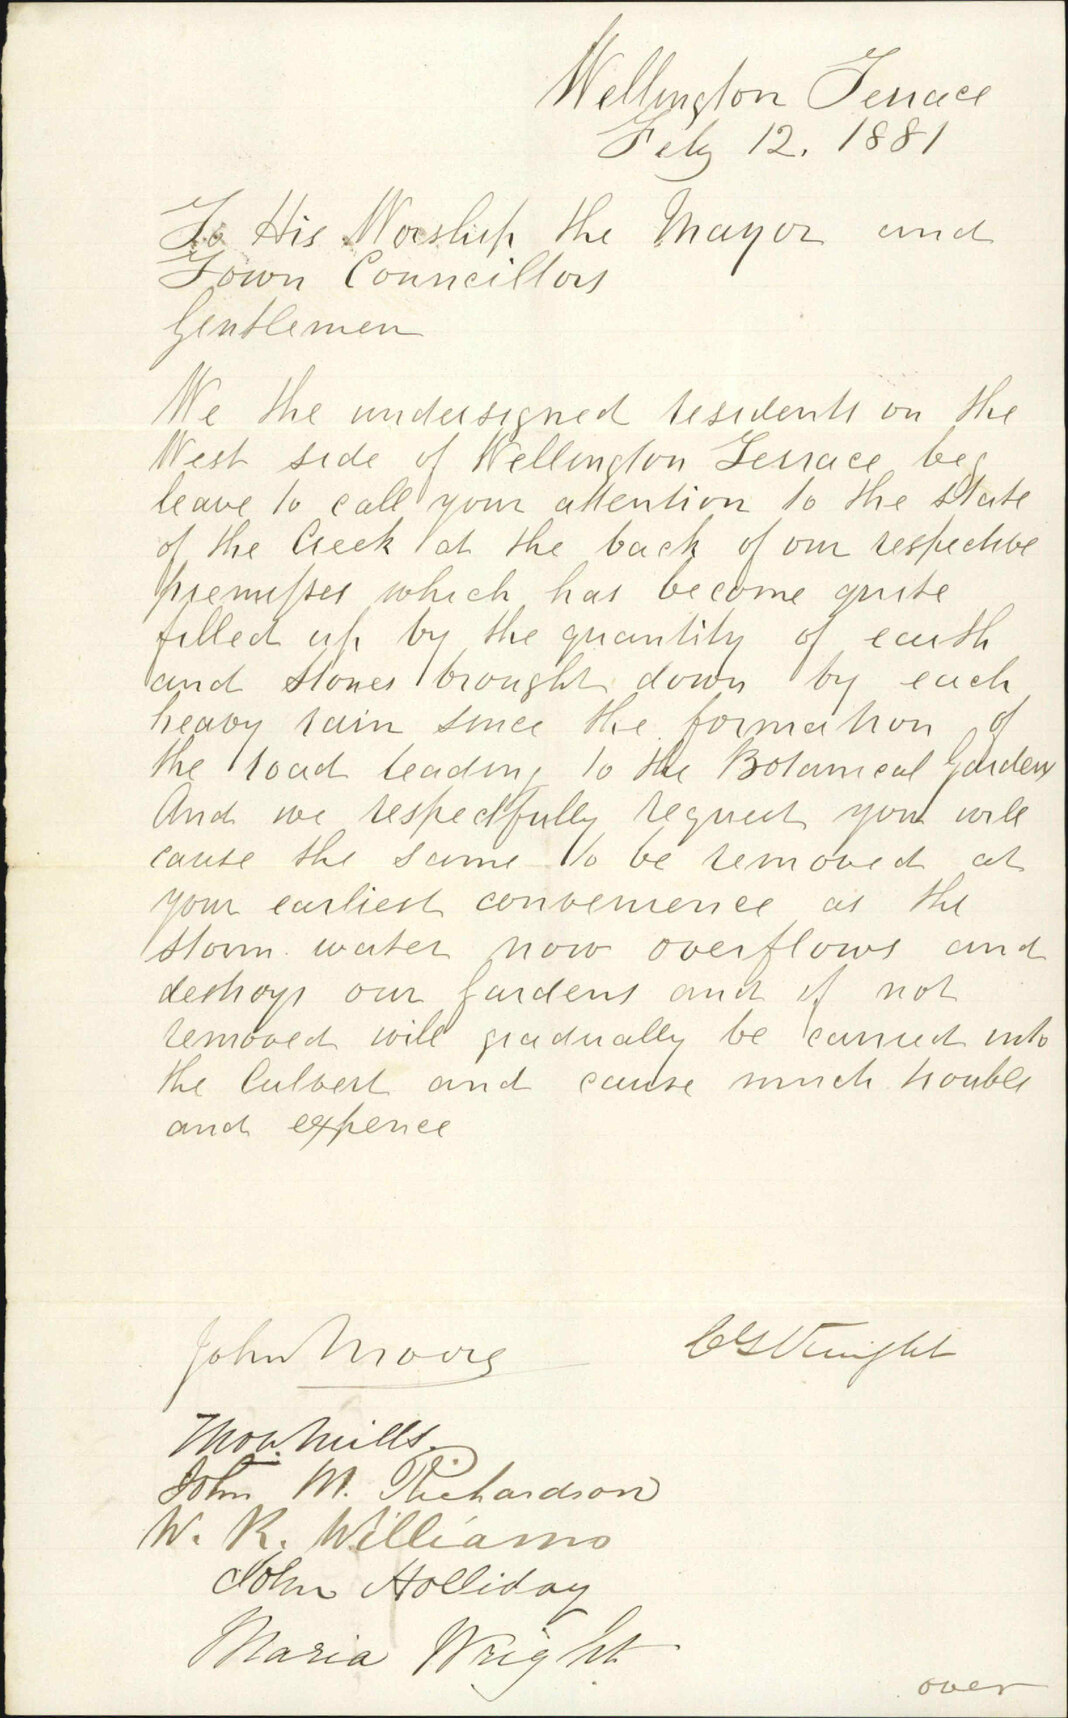 Wellington Terrace
Feby 12. 1881
To His Worship the Mayor and
Town Councillors
Gentlemen
We the undersigned residents on the
West side of Wellington Terrace beg
leave to call your attention to the state
of the Creek at the back of our respective
premisses which has become quite
filled up by the quantity of earth
and stones brought down by each
heavy rain since the formation of
the road leading to the Botanical Gardens
And we respectfully request you will
cause the same to be removed at
your earliest convenience as the
storm water now overflows and
destroys our Gardens and if not
removed will gradually be carried into
the Culvert and cause much trouble
and expence
John Moore
Thos. Mills.
John M. Richardson
W. R. Williams
John Holliday
Maria Wright
over